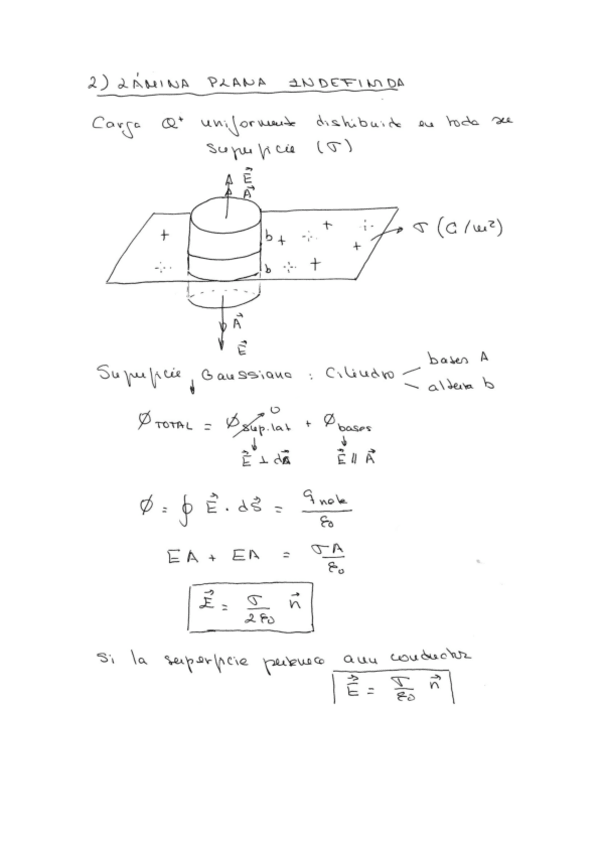 2) LÁMINA PLANA INDEFINIDA
Carga Q⁺ uniformemente distribuida en toda su
superficie (σ)
E⃗
A⃗
b
b
σ (C/m²)
A⃗
E⃗
Superficie Gaussiana : Cilindro
bases A
altura b
Ø TOTAL = Ø sup.lat + Ø bases
0
E⃗ ⊥ dA⃗ E⃗ ∥ A⃗
Ø = ∮ E⃗ · dS⃗ = q neta / ε₀
EA + EA = σA / ε₀
E⃗ = σ / 2ε₀ n⃗
Si la superficie pertenece a un conductor
E⃗ = σ / ε₀ n⃗